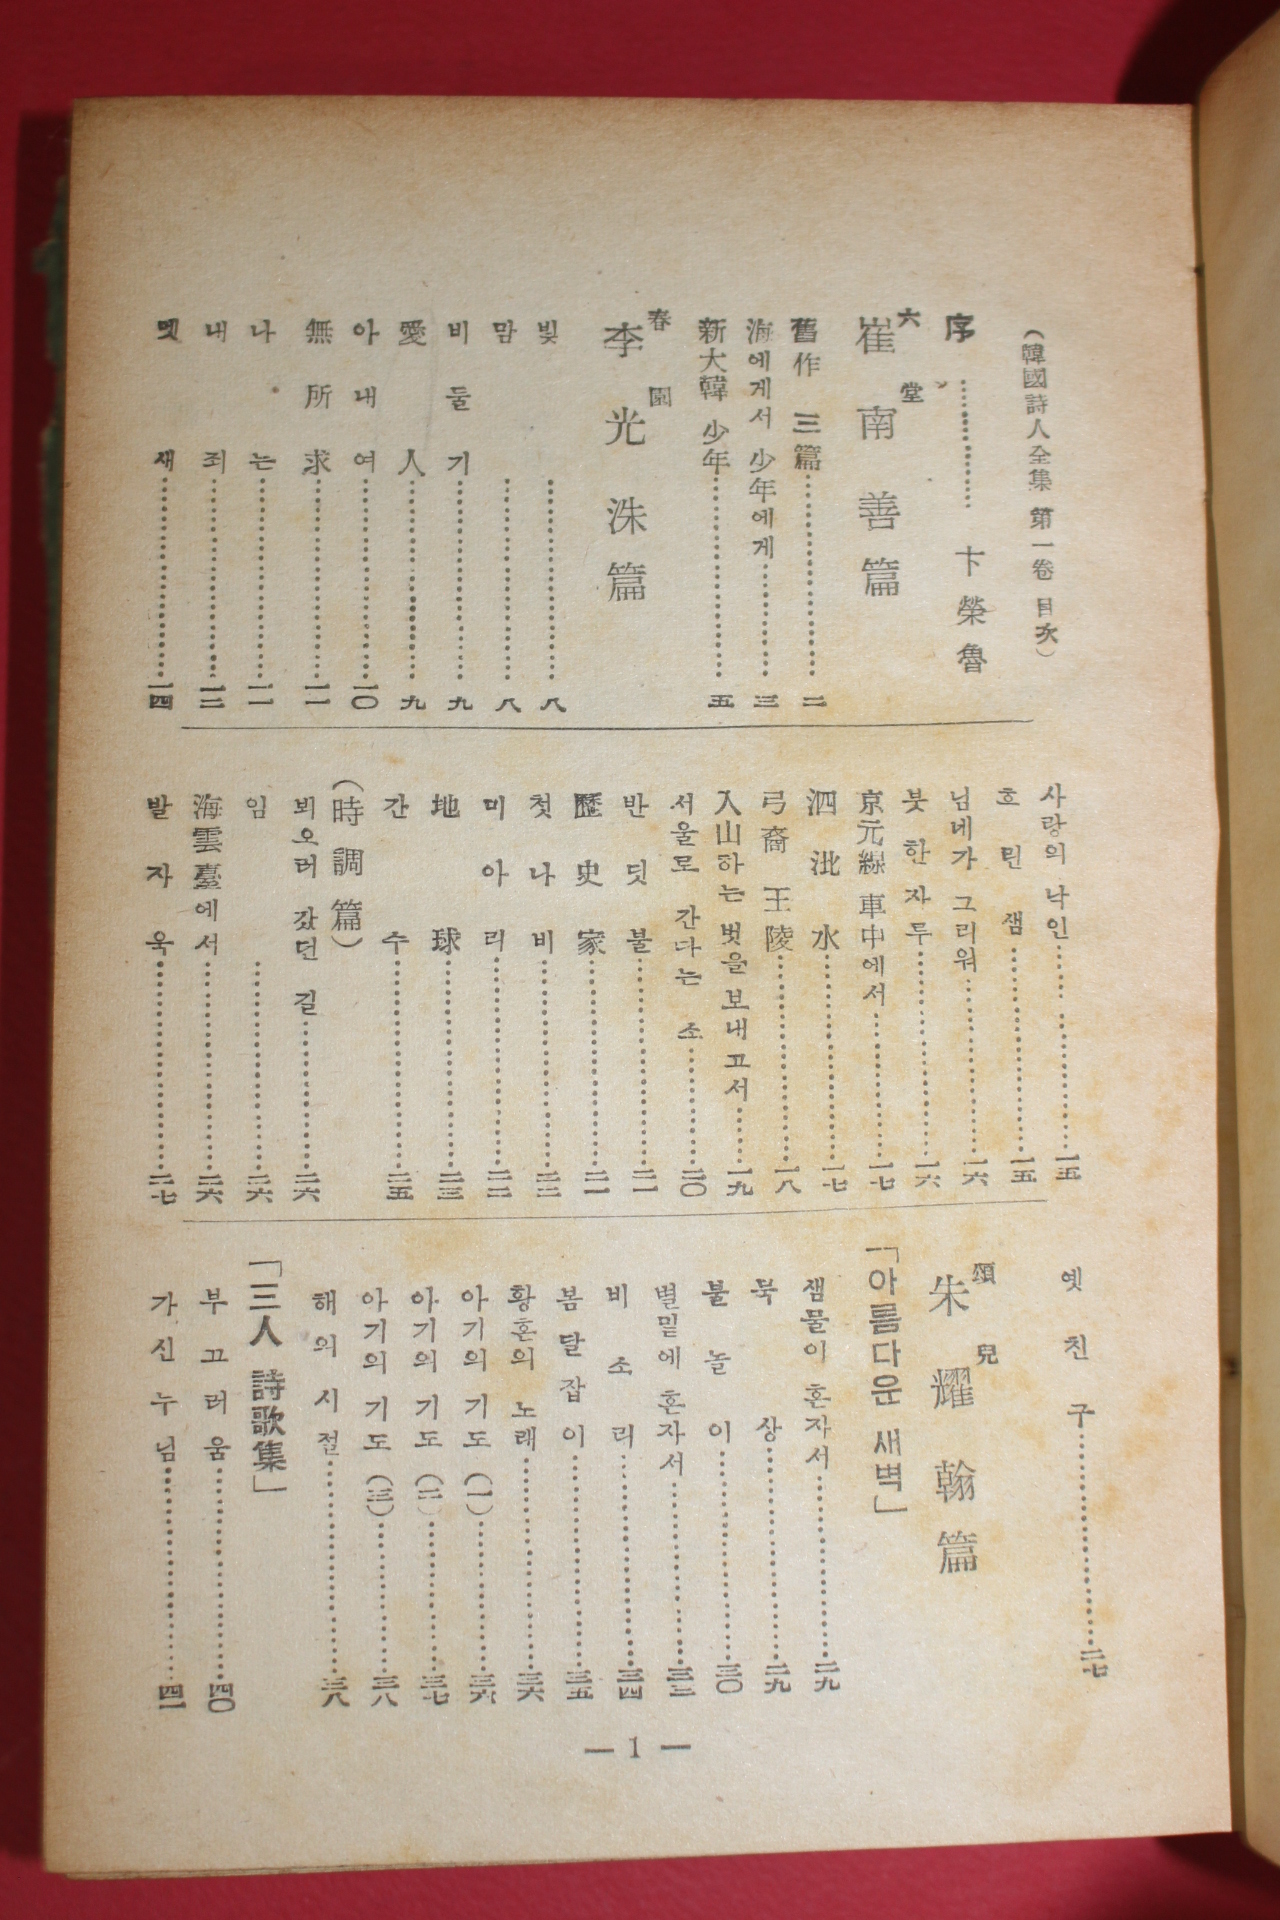 (韓國詩人全集 第一卷 目次)
序 …… 卞榮魯
六堂
崔南善篇
舊作 三篇……二
海에게서 少年에게……三
新大韓 少年……五
春園
李光洙篇
빛……八
맘……八
비둘기……九
愛人……九
아내여……一〇
無所求……一一
나는……一一
내 죄……一三
멧새……一四
사랑의 낙인……一五
흐린 샘……一五
님네가 그리워……一六
붓 한 자루……一六
京元線 車中에서……一七
泗沘水……一七
弓裔 王陵……一八
入山하는 벗을 보내고서……一九
서울로 간다는 소……二〇
반딧불……二一
歷史家……二一
첫나비……二二
미아리……二二
地球……二三
간수……二五
(時調篇)
뵈오러 갔던 길……二六
임……二六
海雲臺에서……二六
발자욱……二七
옛친구……二七
頌兒
朱耀翰篇
「아름다운 새벽」
샘물이 혼자서……二九
묵상……二九
불놀이……三〇
별밑에 혼자서……三三
비소리……三四
봄달잡이……三五
황혼의 노래……三六
아기의 기도 (一)……三六
아기의 기도 (二)……三七
아기의 기도 (三)……三八
해의 시절……三八
「三人 詩歌集」
부끄러움……四〇
가신누님……四一
— 1 —